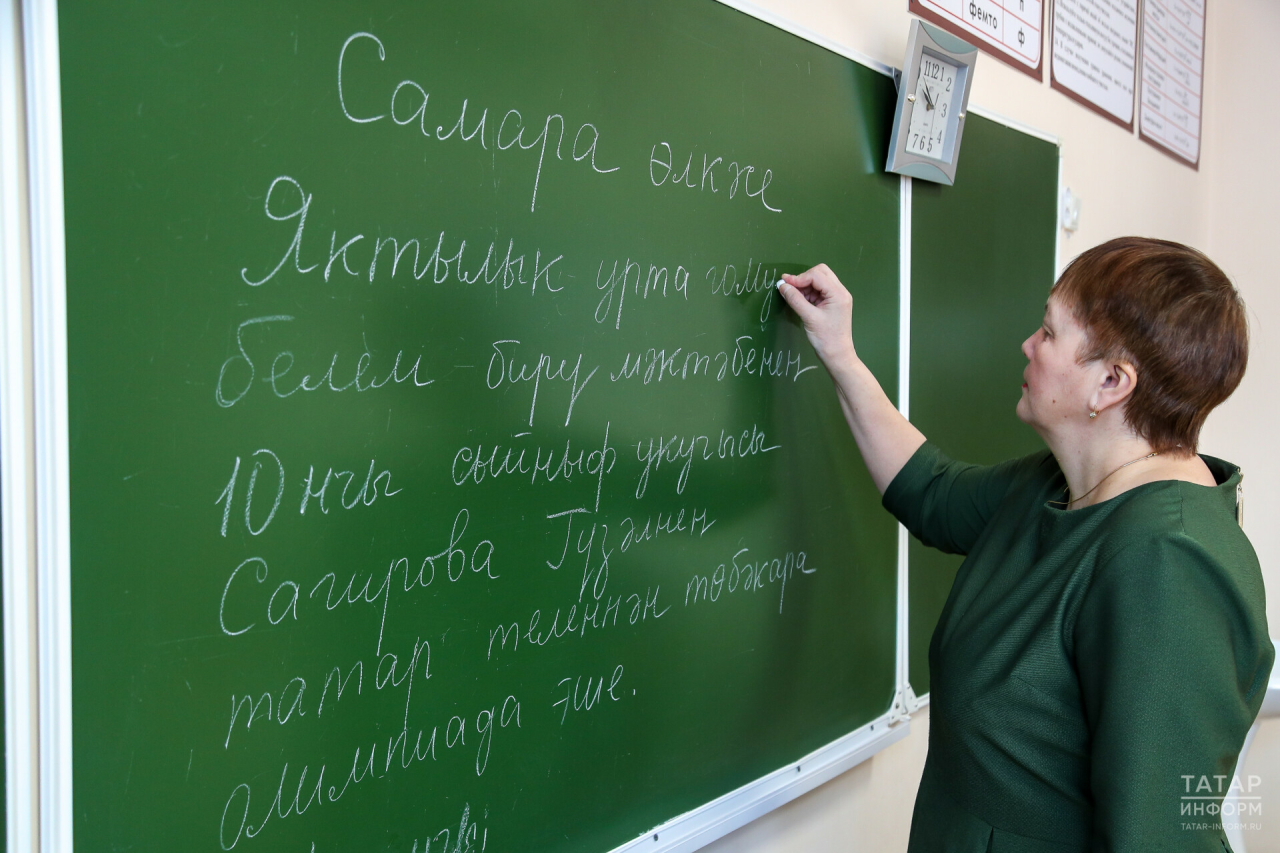 Самара өлкәсе
Яктылык урта гому
белем бирү мәктәбенең
10 нчы сыйныф укучысы
Сагирова Гүзәлнең
татар теленнән төбәкара
олимпиада эше.
фемто ф
11 12 1 2 3 4 5 6 7
ТАТАР
ИНФОРМ
TATAR-INFORM.RU